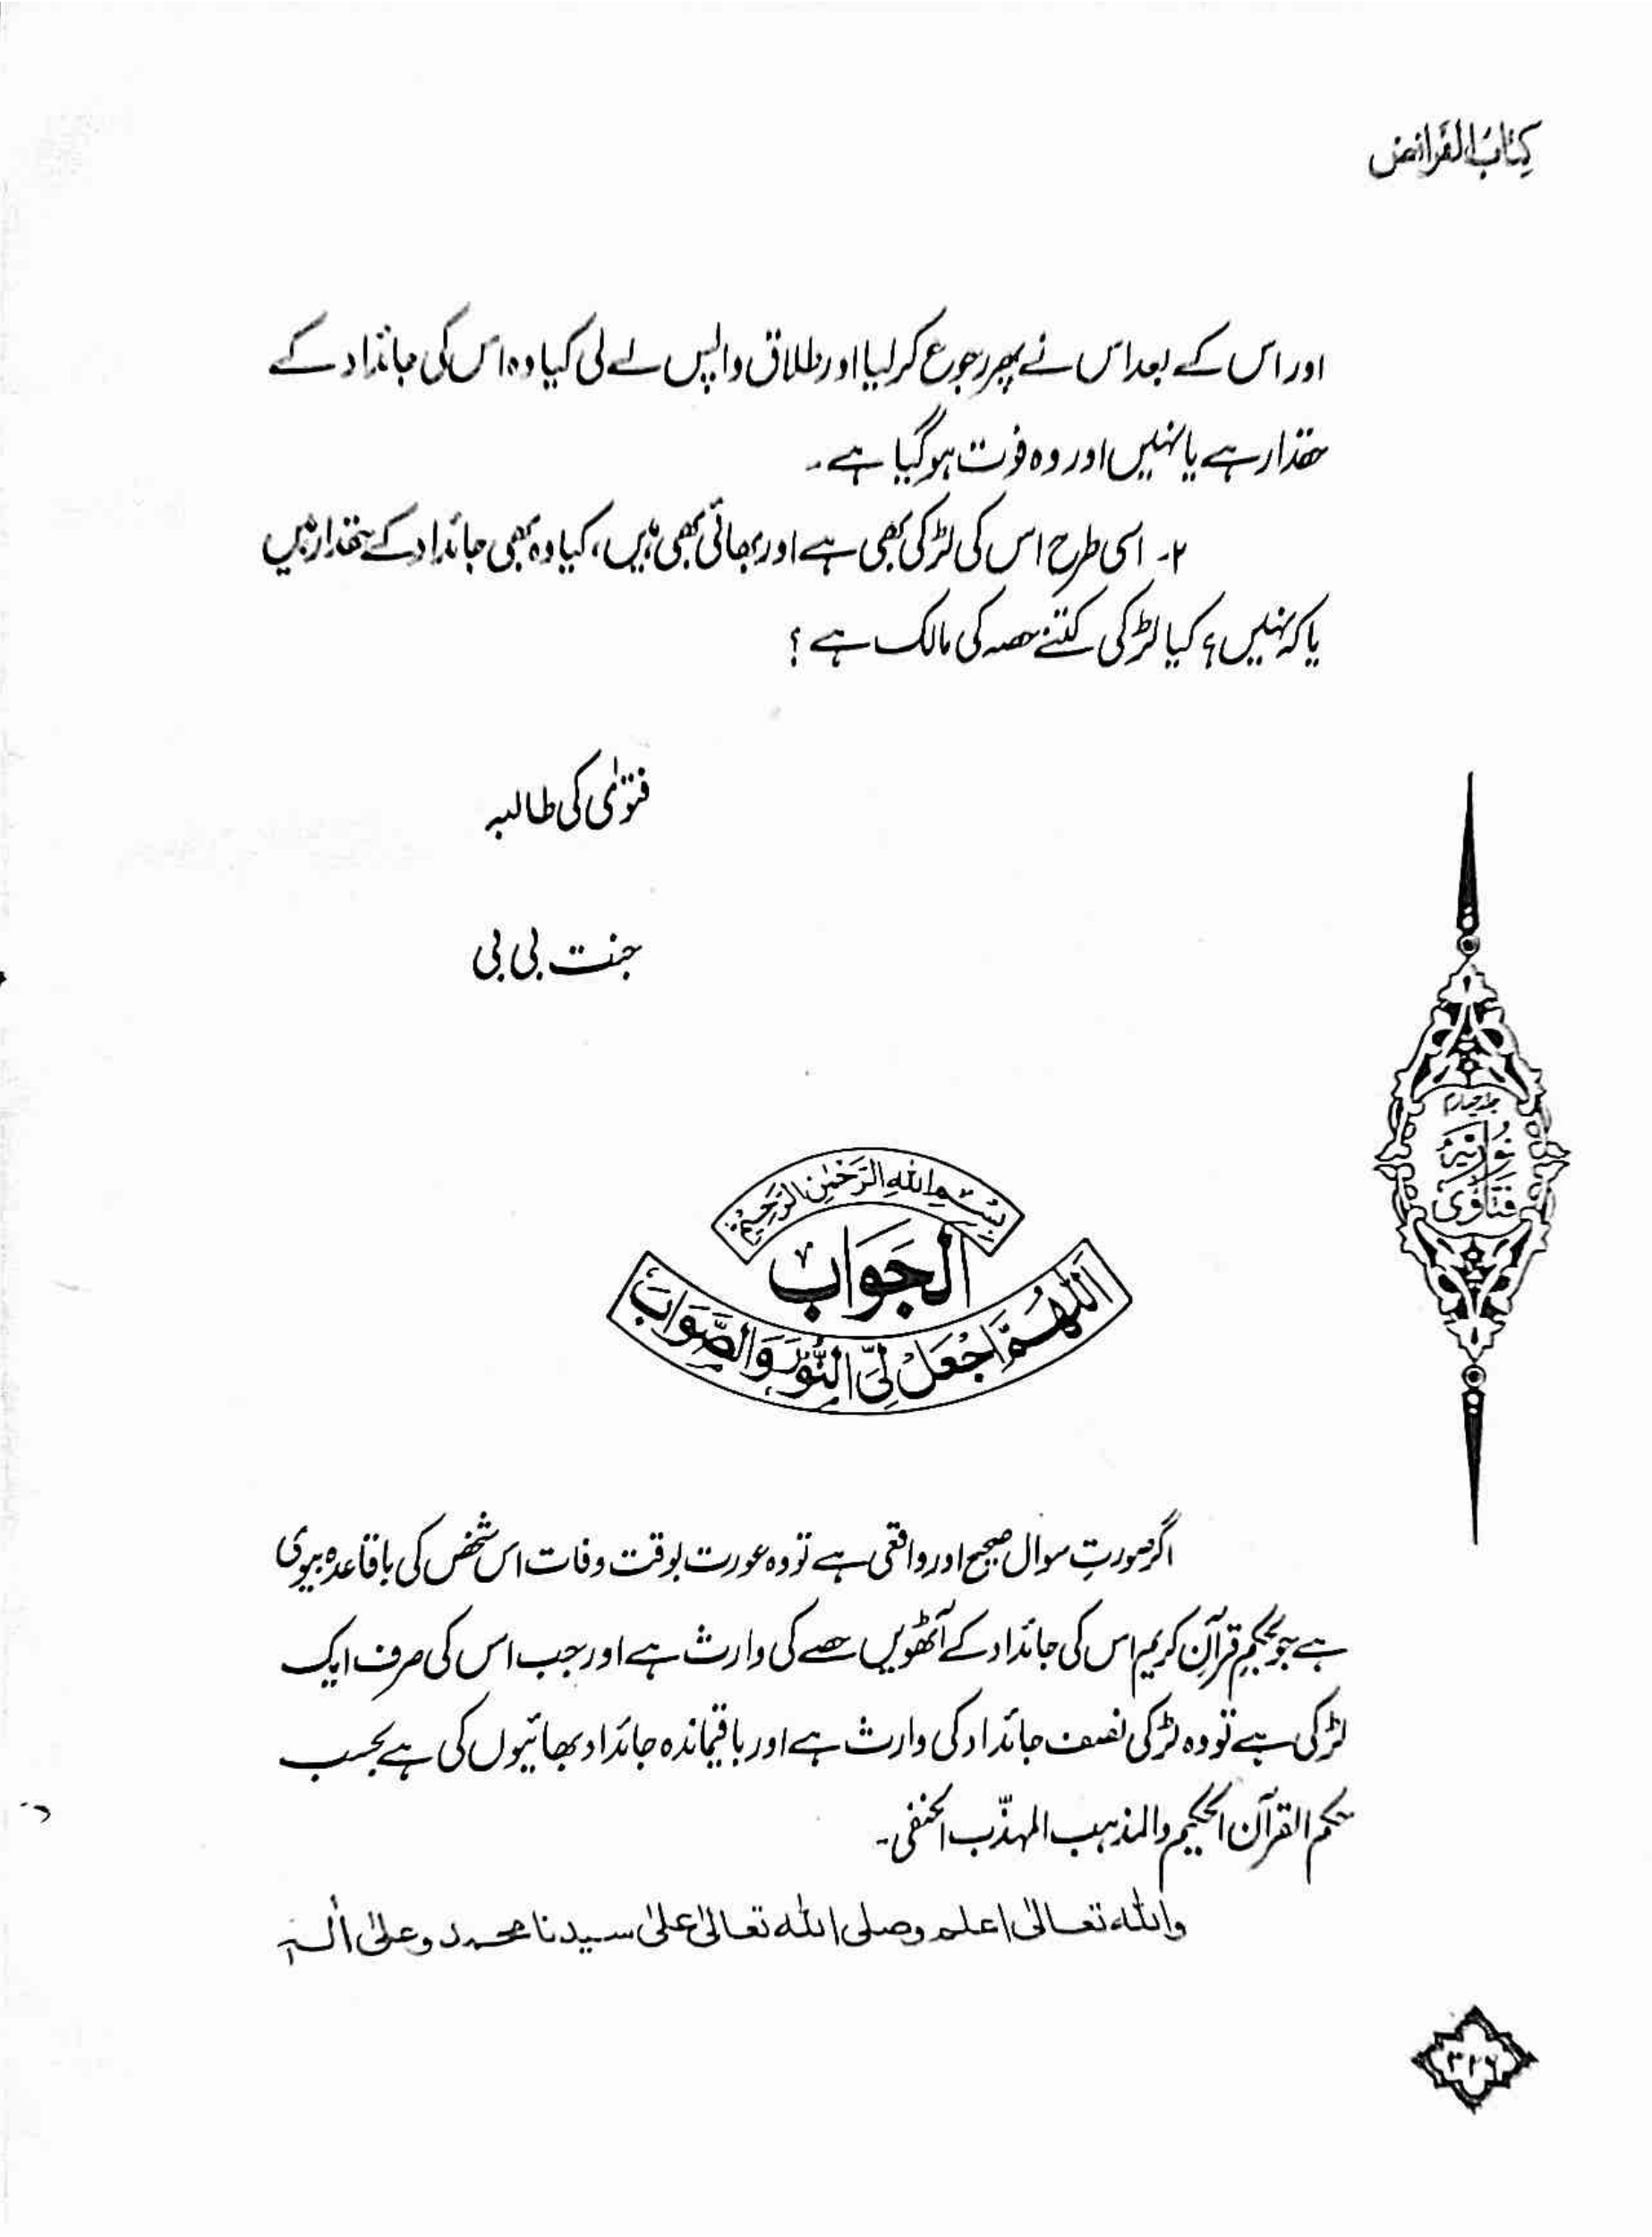 کتاب الفرائض
اور اس کے بعد اس نے پھر رجوع کر لیا اور طلاق واپس لے لی کیا وہ اس کی جائداد کے
حقدار ہے یا نہیں اور وہ فوت ہو گیا ہے۔
۲۔ اسی طرح اس کی لڑکی بھی ہے اور بھائی بھی ہیں، کیا وہ بھی جائداد کے حقدار ہیں
یا کہ نہیں؟ کیا لڑکی کتنے حصہ کی مالک ہے؟
فتوٰی کی طالبہ
جنت بی بی
جلد چہارم
نُورِیَّہ
فَتَاوٰی
بِسْمِ اللهِ الرَّحْمٰنِ الرَّحِیْمِ
اَلْجَوَابُ
اَللّٰهُمَّ اجْعَلْ لِیَ النُّوْرَ وَالصَّوَابَ
اگر صورتِ سوال صحیح اور واقعی ہے تو وہ عورت بوقت وفات اس شخص کی باقاعدہ بیوی
ہے جو بحکمِ قرآنِ کریم اس کی جائداد کے آٹھویں حصے کی وارث ہے اور جب اس کی صرف ایک
لڑکی ہے تو وہ لڑکی نصف جائداد کی وارث ہے اور باقیماندہ جائداد بھائیوں کی ہے بحسب
حکم القرآن الحکیم والمذہب المہذّب الحنفی۔
والله تعالیٰ اعلم وصلی الله تعالیٰ علیٰ سیدنا محمد وعلیٰ اٰلہٖ
۳۲۶